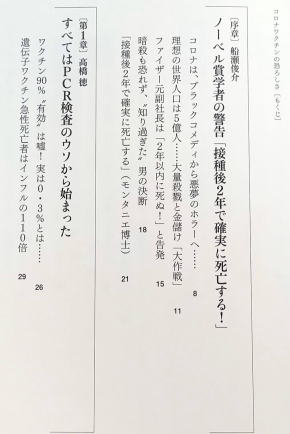 コロナワクチンの恐ろしさ［もくじ］
［序章］船瀬俊介
ノーベル賞学者の警告「接種後2年で確実に死亡する！」
コロナは、ブラックコメディから悪夢のホラーへ…… 8
理想の世界人口は5億人……大量殺戮と金儲け「大作戦」 11
ファイザー元副社長は「2年以内に死ぬ！」と告発 15
暗殺も恐れず、“知り過ぎた”男の決断 18
「接種後2年で確実に死亡する」（モンタニエ博士） 21
［第1章］高橋 徳
すべてはPCR検査のウソから始まった
ワクチン90％“有効”は嘘！実は0・3％とは…… 26
遺伝子ワクチン急性死亡者はインフルの110倍 29